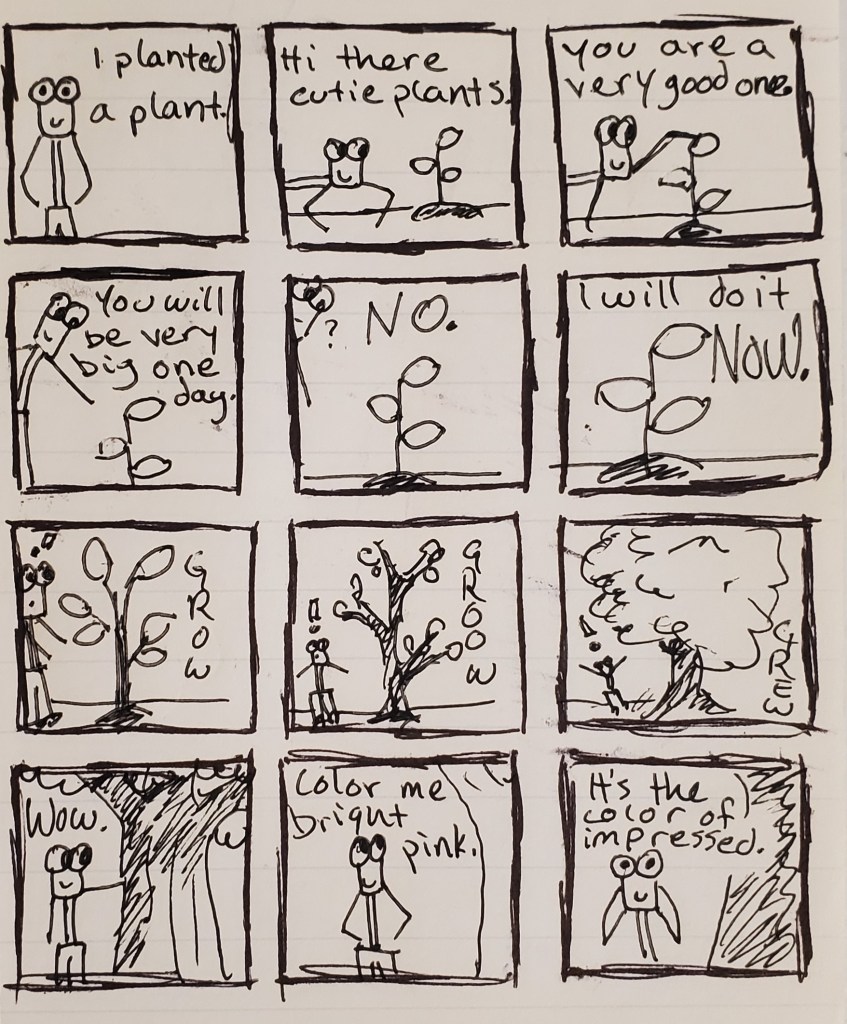 I planted
a plant.
Hi there
cutie plants.
You are a
very good one.
You will
be very
big one
day.
?
NO.
I will do it
NOW.
!
GROW
!
GROOW
!
GREW
Wow.
Color me
bright
pink.
It's the
color of
impressed.